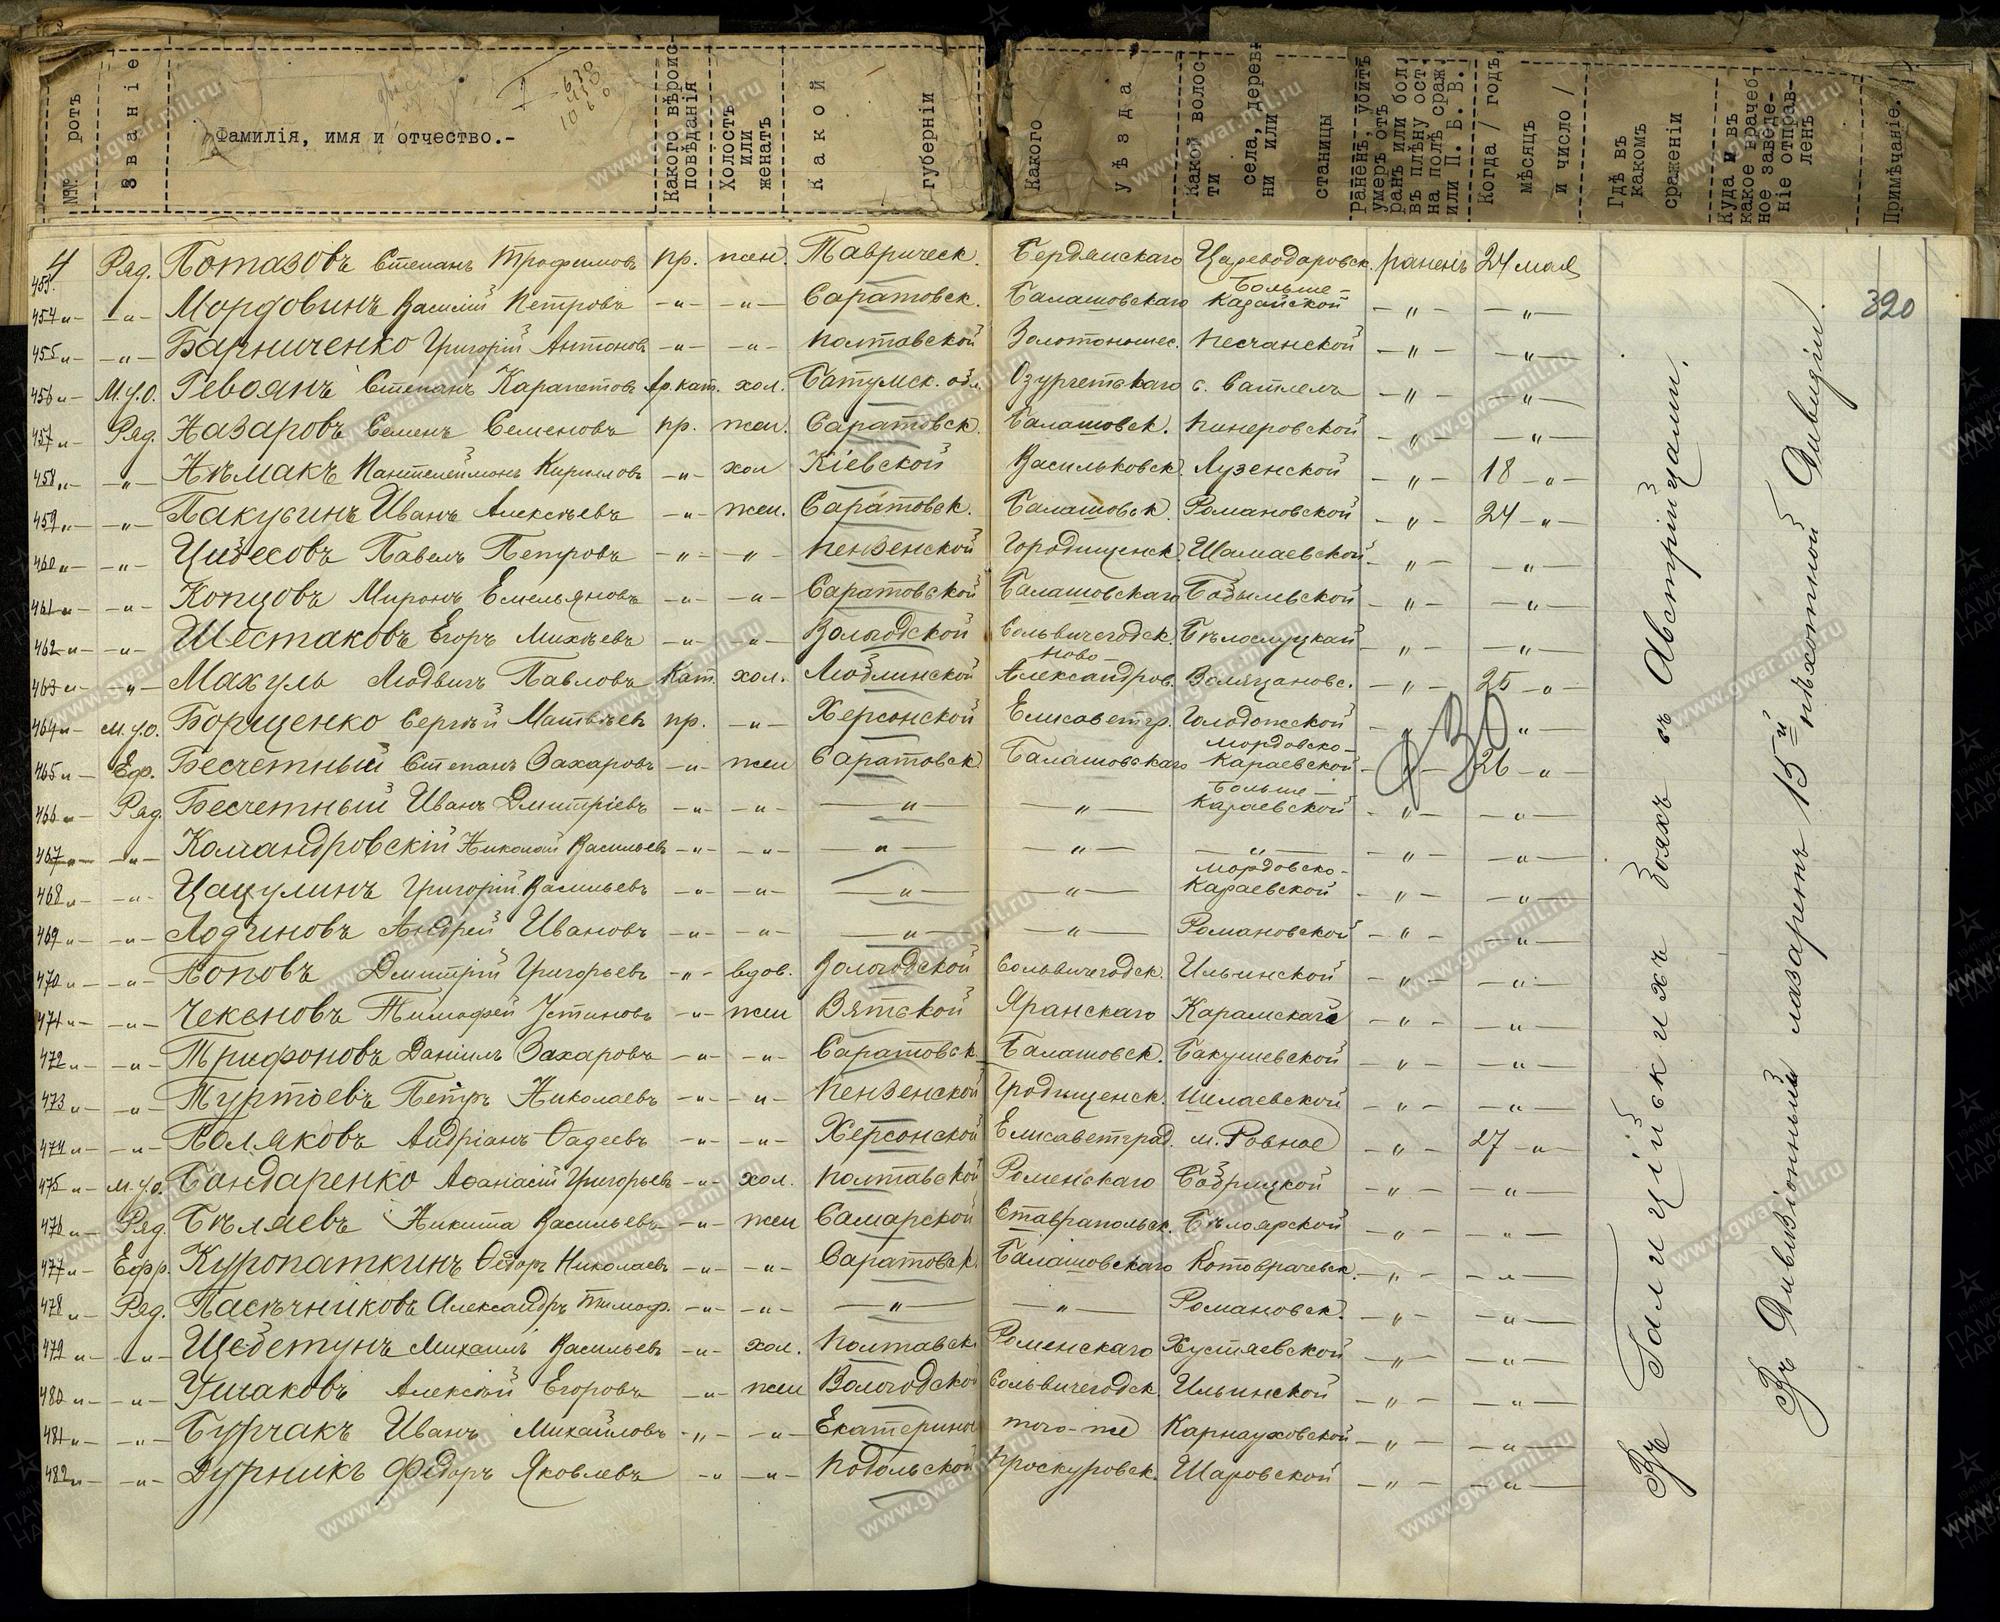 №№ ротъ
Званіе
Фамилія, имя и отчество.-
Какого вѣроис-
повѣданія
Холостъ
или
женатъ
Какой
губерніи
Какого
уѣзда
Какой волос-
ти
села, дерев-
ни или
станицы
Раненъ, убитъ
умеръ отъ
ранъ или бол.
въ плѣну ост.
на полѣ сраж.
или П. Б. В.
Когда / годъ,
мѣсяцъ
и число /
Гдѣ въ
какомъ
сраженіи
Куда и въ
какое врачеб
ное заведе-
ніе отправ-
ленъ
Примѣчаніе.
320
4 453 Ряд. Потазовъ Степанъ Трофимовъ пр. жен. Таврическ. Бердянскаго Цареводаровск. раненъ 24 мая
454 -„- -„- Мордовинъ Василій Петровъ -„- -„- Саратовск. Балашовскаго Больше-Казайской -„- -„-
455 -„- -„- Барниченко Григорій Антоновъ -„- -„- Полтавской Золотоношес. Песчанской -„- -„-
456 -„- М.у.О. Гевоянъ Степанъ Карапетовъ Ар.кат. хол. Батумск. обл. Озургетскаго с. Сатлелъ -„- -„-
457 -„- Ряд. Назаровъ Семенъ Семеновъ пр. жен. Саратовск. Балашовск. Пинеровской -„- -„-
458 -„- -„- Нѣмакъ Пантелеймонъ Кириловъ -„- хол Кіевской Васильковск. Лузенской -„- 18 -„-
459 -„- -„- Пакусинъ Иванъ Алексѣевъ -„- жен. Саратовск. Балашовск. Романовской -„- 24 -„-
460 -„- -„- Цибесовъ Павелъ Петровъ -„- -„- Пензенской Городищенск. Шамаевской -„- -„-
461 -„- -„- Копцовъ Миронъ Емельяновъ -„- -„- Саратовской Балашовскаго Бобылевской -„- -„-
462 -„- -„- Шестаковъ Егоръ Михѣевъ -„- -„- Вологодской Сольвичегодск. Бѣлослуцкай -„- -„-
463 -„- -„- Махуль Людвигъ Павловъ Кат. хол. Люблинской Ново-Александров. Воляцановс. -„- 25 -„-
464 -„- м.у.о. Борщенко Сергѣй Матвѣев пр. -„- Херсонской Елисаветгр. Голодожской -„- 30 -„-
465 -„- Еф. Бесчетный Степанъ Захаровъ -„- жен Саратовск. Балашовскаго Мордовско-Караевской -„- 26 -„-
466 -„- Ряд. Бесчетный Иванъ Дмитріевъ -„- -„- -„- -„- Больше-Караевской -„- -„-
467 -„- -„- Командровскій Николай Васильевъ -„- -„- -„- -„- -„- -„- -„-
468 -„- -„- Цацулинъ Григорій Васильевъ -„- -„- -„- -„- Мордовско-Караевской -„- -„-
469 -„- -„- Лодчиновъ Андрей Ивановъ -„- -„- -„- -„- Романовской -„- -„-
470 -„- -„- Поповъ Дмитрій Григорьевъ -„- вдов. Вологодской Сольвичегодск. Ильинской -„- -„-
471 -„- -„- Чекеновъ Тимофей Устиновъ -„- жен Вятской Яранскаго Карамскаго -„- -„-
472 -„- -„- Трифоновъ Даніилъ Захаровъ -„- -„- Саратовск. Балашовск. Бакушевской -„- -„-
473 -„- -„- Туртоевъ Петръ Николаевъ -„- -„- Пензенской Гродищенск. Шилаевской -„- -„-
474 -„- -„- Поляковъ Андріанъ Фадеевъ -„- -„- Херсонской Елисаветград. м. Ровное -„- 27 -„-
475 -„- м.у.о. Бандаренко Афанасій Григорьевъ -„- хол. Полтавской Роменскаго Бобрицкой -„- -„-
476 -„- Ряд. Бѣляевъ Никита Васильевъ -„- жен Самарской Ставрапольск. Бѣлоярской -„- -„-
477 -„- Ефр. Куропаткинъ Федоръ Николаевъ -„- -„- Саратовск. Балашовскаго Котоврачевск. -„- -„-
478 -„- Ряд. Пасѣчниковъ Александръ Тимоф. -„- -„- -„- -„- Романовск. -„- -„-
479 -„- -„- Щебетунъ Михаилъ Васильевъ -„- хол. Полтавск. Роменскаго Хустяевской -„- -„-
480 -„- -„- Ушаковъ Алексѣй Егоровъ -„- жен Вологодской Сольвичегодск. Ильинской -„- -„-
481 -„- -„- Бурчакъ Иванъ Михайловъ -„- -„- Екатеринос того-же Карнауховской -„- -„-
482 -„- -„- Дурникъ Федоръ Яковлевъ -„- -„- Подольской Проскуровск. Шаровской -„- -„-
Въ Галиційскихъ бояхъ съ Австрійцами.
Въ Дивизіонный лазаретъ 15й пѣхотной Дивизіи.
www.gwar.mil.ru